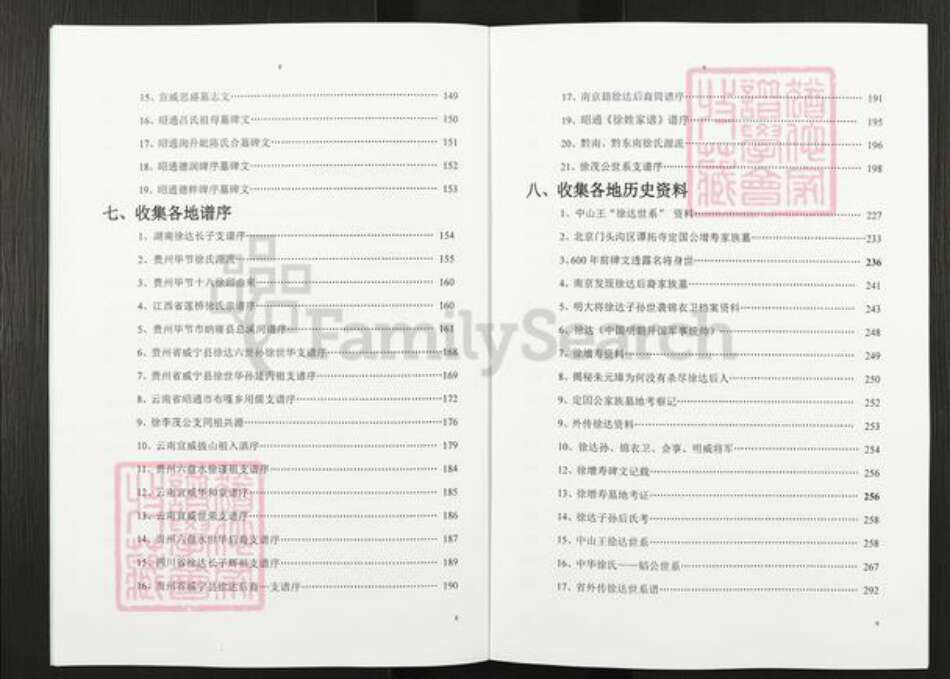 15、宣威思盛墓志文 149
16、昭通吕氏祖母墓碑文 150
17、昭通洵升妣陈氏合墓碑文 151
18、昭通德润碑序墓碑文 152
19、昭通德粹碑序墓碑文 153
七、收集各地谱序
1、湖南徐达长子支谱序 154
2、贵州毕节徐氏源流 155
3、贵州毕节十八徐 由来 160
4、江西省莲桥徐氏宗谱序 160
5、贵州毕节市纳雍县总溪河谱序 161
6、贵州省威宁县徐达六世孙徐世华支谱序 168
7、贵州省威宁县徐世华孙廷丙祖支谱序 169
8、云南省昭通市布嘎乡用儒支谱序 172
9、徐李茂公支同祖共源 176
10、云南宣威拔山祖入滇序 179
11、贵州六盘水徐谨祖支谱序 184
12、云南宣威华 支谱序 185
13、云南宣威世荣支谱序 186
14、贵州六盘水世华后裔支谱序 187
15、四川省徐达长子辉祖支谱序 189
16、贵州省威宁县徐达后裔一支谱序 190
8
17、南京籍徐达后裔简谱序 191
19、昭通《徐姓家谱》谱序 195
20、黔南、黔东南徐氏源流 196
21、徐茂公世系支谱序 198
八、收集各地历史资料
1、中山王“徐达世系” 资料 227
2、北京门头沟区谭拓寺定国公增寿家族墓 233
3、600 年前碑文透露名将身世 236
4、南京发现徐达后裔家族墓 241
5、明大将徐达子孙世袭锦衣卫档案资料 243
6、徐达《中国明朝开国军事统帅》 248
7、徐增寿资料 249
8、揭秘朱元璋为何没有杀尽徐达后人 250
9、定国公家族墓地考察记 252
9、外传徐达资料 253
10、徐达孙、锦衣卫、佥事、明威将军 254
12、徐增寿碑文记载 256
13、徐增寿墓地考证 256
14、徐达子孙后氏考 258
15、中山王徐达世系 258
16、中华徐氏——韬公世系 267
17、省外传徐达世系谱 292
9
FamilySearch